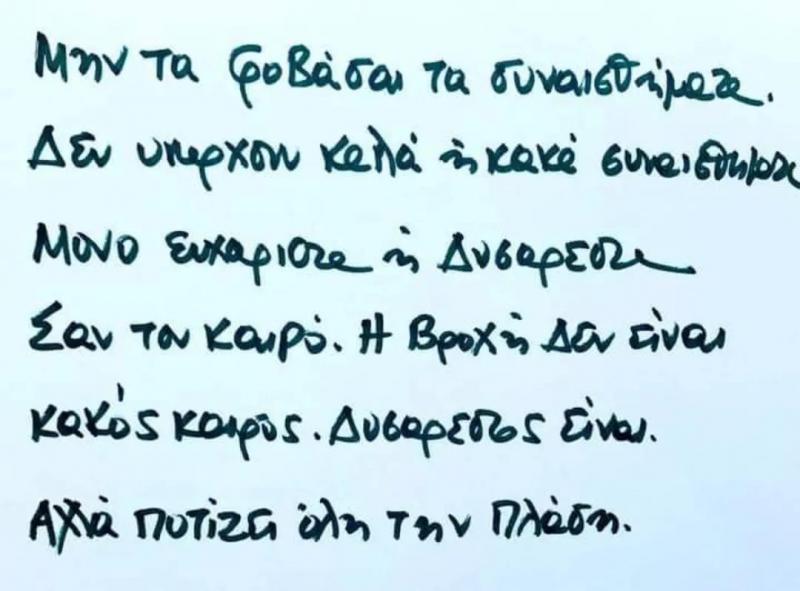 Μην τα φοβάσαι τα συναισθήματα.
Δεν υπαρχουν καλά ή κακά συναισθηματα
Μονο ευχαριστα ή Δυσαρεστα
Σαν τον καιρό. Η Βροχή Δεν είναι
κακός καιρος. Δυσαρεστος είναι.
Αλλά ποτίζει όλη την Πλάση.